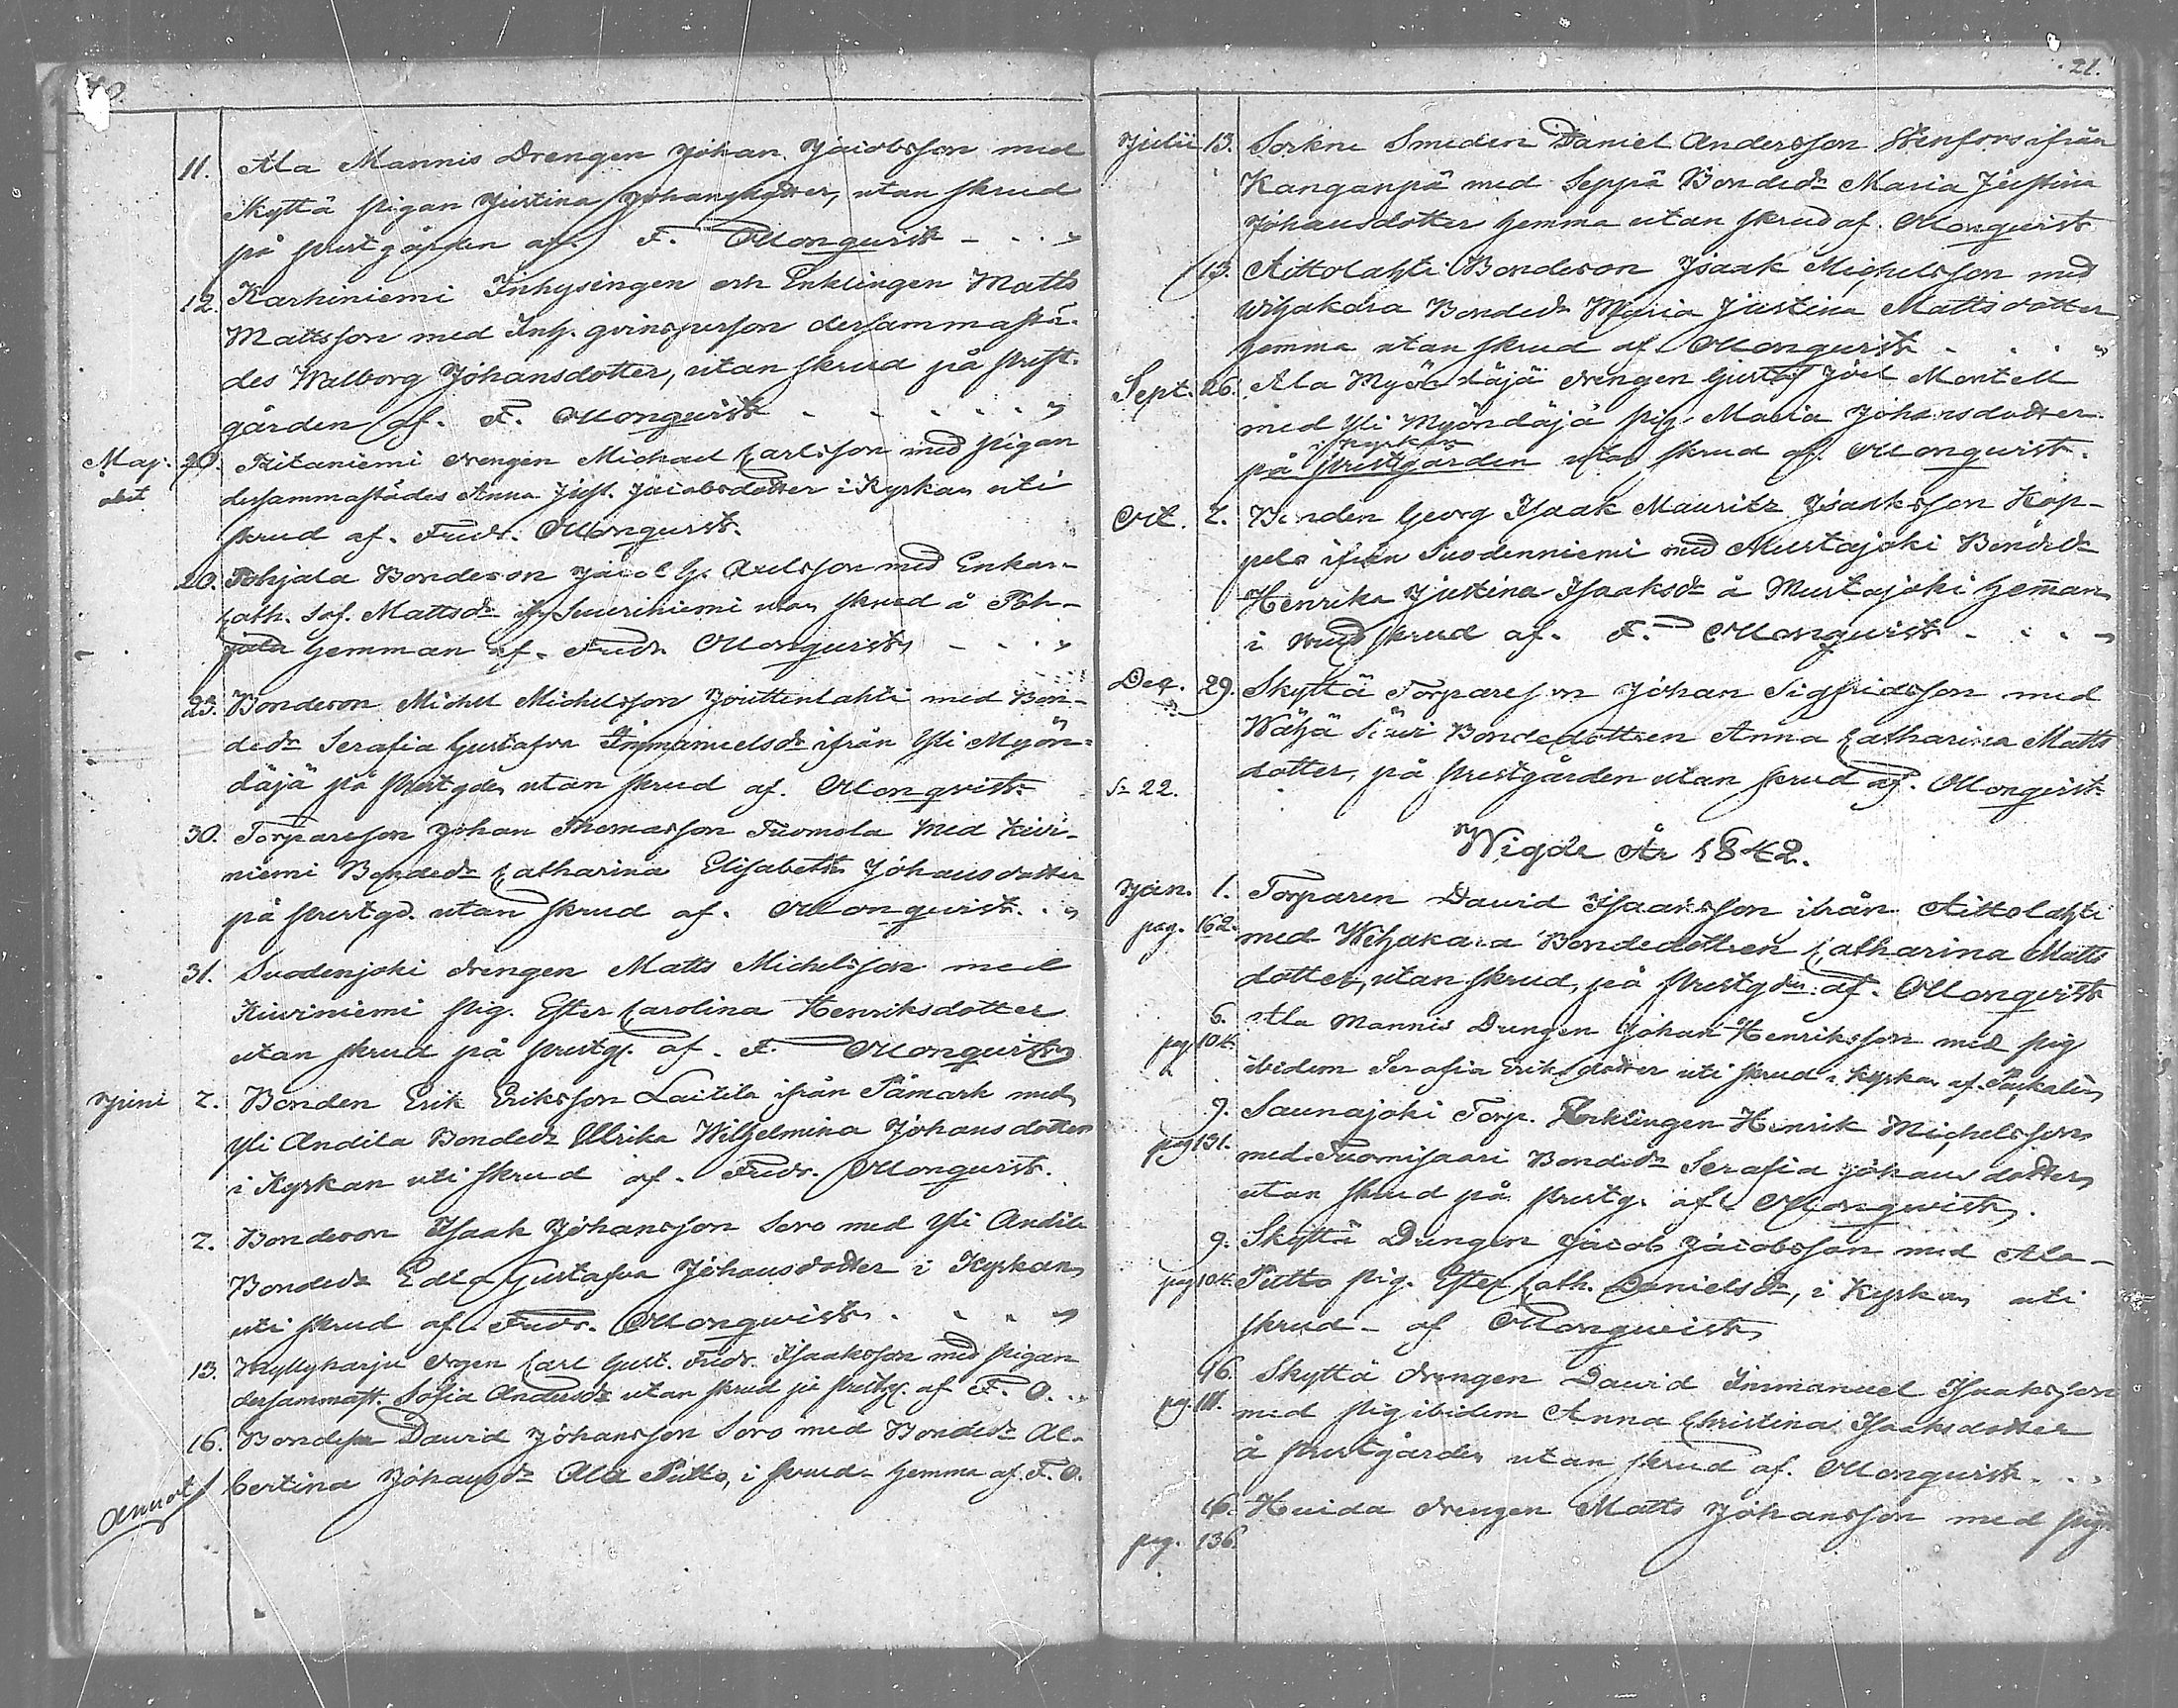 11. Ala Mannis Drengen Johan Jacobsson med
Skyttä pigan Justina Johansdotter, utan skrud
på prestgården af. F. Monqvist
12. Karhiniemi Inhysingen och Enklingen Matts
Mattsson med Inh. qvinsperson dersammastä-
des Walborg Johansdotter, utan skrud på prest-
gården af. F. Monqvist
Maj. 20. Ritaniemi drengen Michael Carlsson med pigan
dersammastädes Anna Just. Jacobsdotter i Kyrkan uti
skrud af. Fredr. Monqvist.
20. Pohjala Bondeson Jacob G. Axelsson med Enkan
Cath. Sof. Mattsdr Saueriniemi utan skrud å Poh-
jala hemman af. Fredr. Monqvist
25. Bondeson Michel Michelsson Jouttenlahti med Bon-
dedr Serafia Gustafva Immanuelsdr ifrån Yli Myön-
däjä på prestgden utan skrud af. Monqvist
30. Torpareson Johan Thomasson Tuomola med Kivi-
niemi Bondedr Catharina Elisabeth Johansdotter
på prestgd. utan skrud af. Monqvist.
31. Suodenjoki drengen Matts Michelsson med
Kiviniemi pig. Ester Carolina Henriksdotter
utan skrud på prestg. af. F. Monqvist
Juni 2. Bonden Erik Eriksson Laitila ifrån Påmark med
Yli Andila Bondedr Ulrika Wilhelmina Johansdotter
i Kyrkan uti skrud af. Fredr. Monqvist.
2. Bondeson Isaak Johansson Soro med Yli Andila
Bondedr Edla Gustafva Johansdotter i Kyrkan
uti skrud af. Fredr. Monqvist.
13. Kyllyharju drgen Carl Gust. Fredr. Isaaksson med pigan
dersammast. Sofia Andersdr utan skrud på prestg. af F. O.
16. Bondeson David Johansson Soro med Bondedr Al-
bertina Johansdr Ala Putto, i skrud hemma af. F. O.
Annot
21.
Julii 13. Sorkni Smeden Daniel Andersson Stenfors ifrån
Kanganpä med Seppä Bondedr Maria Justina
Johansdotter hemma utan skrud af. Monqvist
13. Aittolahti Bondeson Isaak Michelsson med
Wihakara Bondedr Maria Justina Mattsdotter
hemma utan skrud af Monqvist
Sept. 26. Ala Myöndäjä drengen Gustaf Joel Montell
med Yli Myöndäjä pig. Maria Johansdotter
i kyrkan
på prestgården utan skrud af. Monqvist.
Oct. 2. Bonden Georg Isaak Mauritz Isaaksson Kop-
pelo ifrån Suodenniemi med Mustajoki Bondedr
Henrika Justina Isaaksdr å Mustajoki heman
i skrud af. F. Monqvist
Dec. 29. Skyttä Torpareson Johan Sigfridsson med
Wähä Bondedottren Anna Catharina Matts
dotter, på prestgården utan skrud af. Monqvist
Sr 22.
Wigde År 1842.
Jan. 1. Torparen David Isaaksson ifrån Aittolahti
pag. 162. med Wihakara Bondedottren Catharina Matts
dotter, utan skrud, på prestgden af. Monqvist
6. Ala Mannis Drengen Johan Henriksson med pig
pag 104. ibidem Serafia Eriksdotter uti skrud i kyrkan af.
9. Saunajoki Torp. Enklingen Henrik Michelsson
pag 131. med Tuomisaari Bondedr Serafia Johansdotter
utan skrud på prestg. af Monqvist.
9. Skyttä Drengen Jacob Jacobsson med Ala-
pag 104. Putto pig. Ester Cath. Danielsdr, i Kyrkan uti
skrud af Monqvist
16. Skyttä drengen David Immanuel Isaaksson
pag. 111. med pig ibidem Anna Christina Isaaksdotter
å prestgården utan skrud af. Monqvist.
16. Huida drengen Matts Johansson med pig
pag. 136.